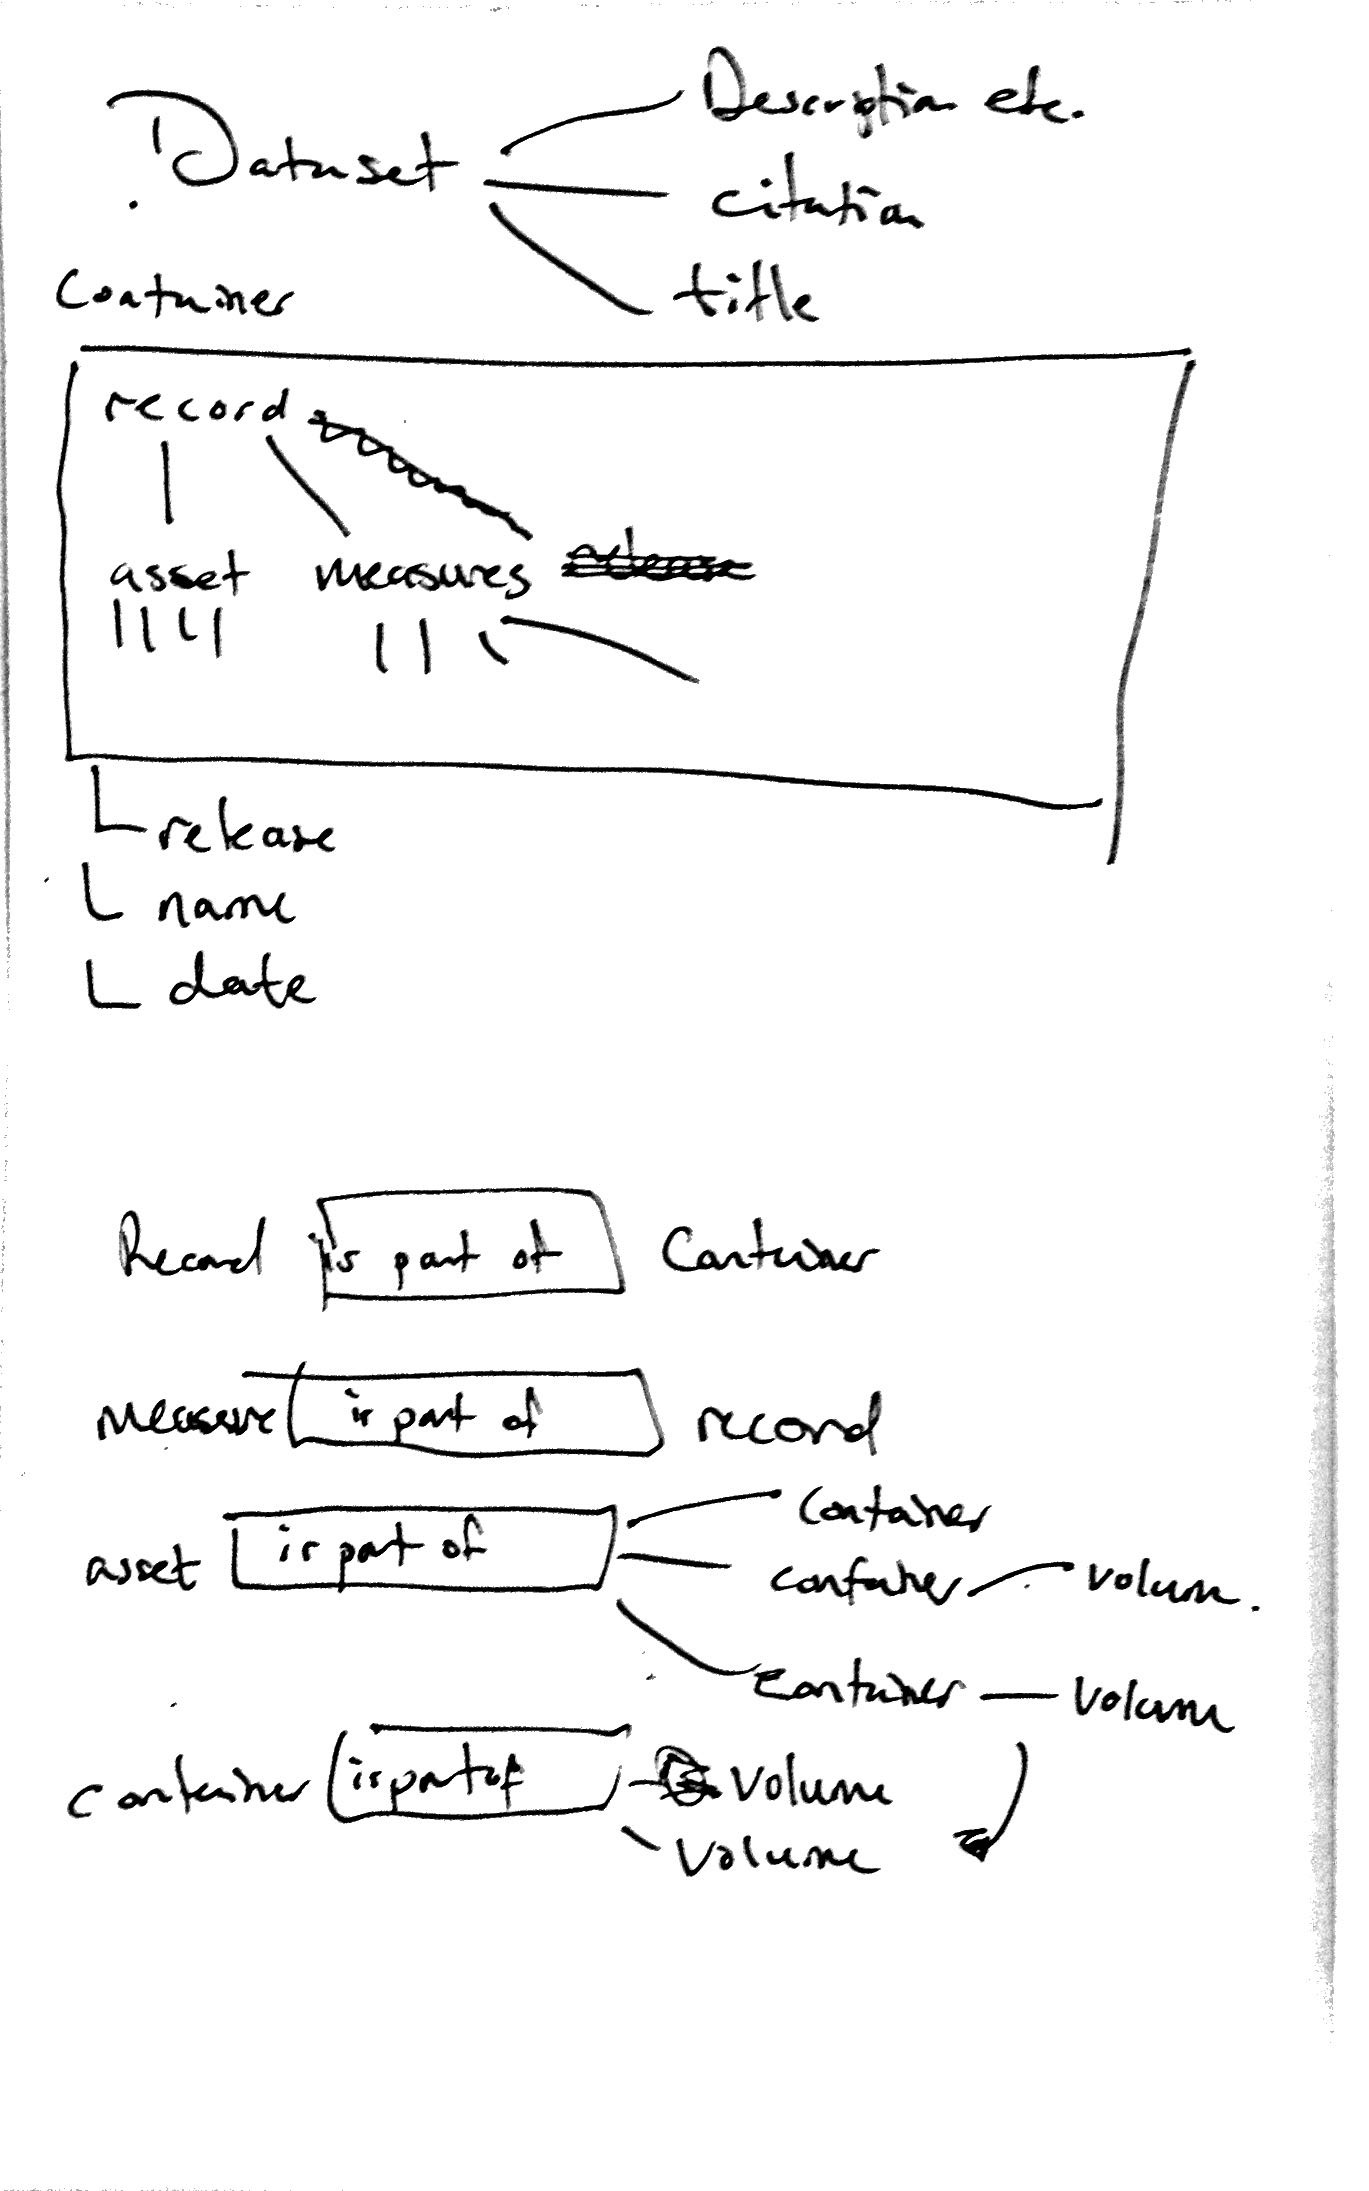 Description etc.
Dataset
citation
title
Container
record
asset measures
release
release
name
date
Record is part of Container
measure is part of record
asset is part of Container
container volum.
Container volume
container is part of volume
volume